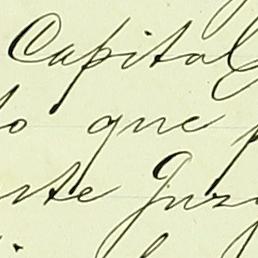 Capital
lo que
rte Juzg